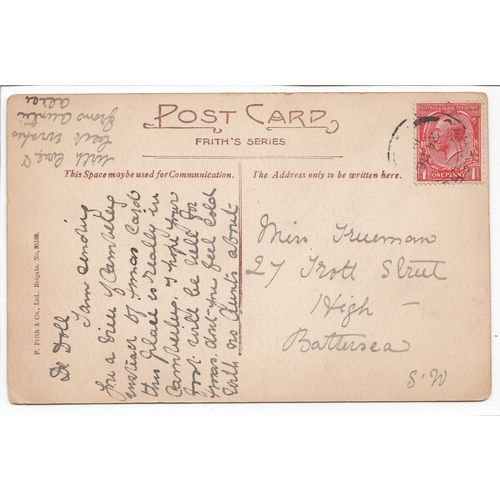 POST CARD
FRITH'S SERIES
This Space may be used for Communication.
The Address only to be written here.
POSTAGE REVENUE
ONE PENNY
F. Frith & Co., Ltd., Reigate. No. 86109.
Dr Doll
I am sending
you a View of Camberley
instead of Xmas Card
this place is really in
Camberley. I hope your
foot will be well for
Xmas. dont you feel Cold
with no Aunts about
with love &
best wishes
from Auntie
Alice
Miss Trueman
27 Trott Street
High –
Battersea
S.W